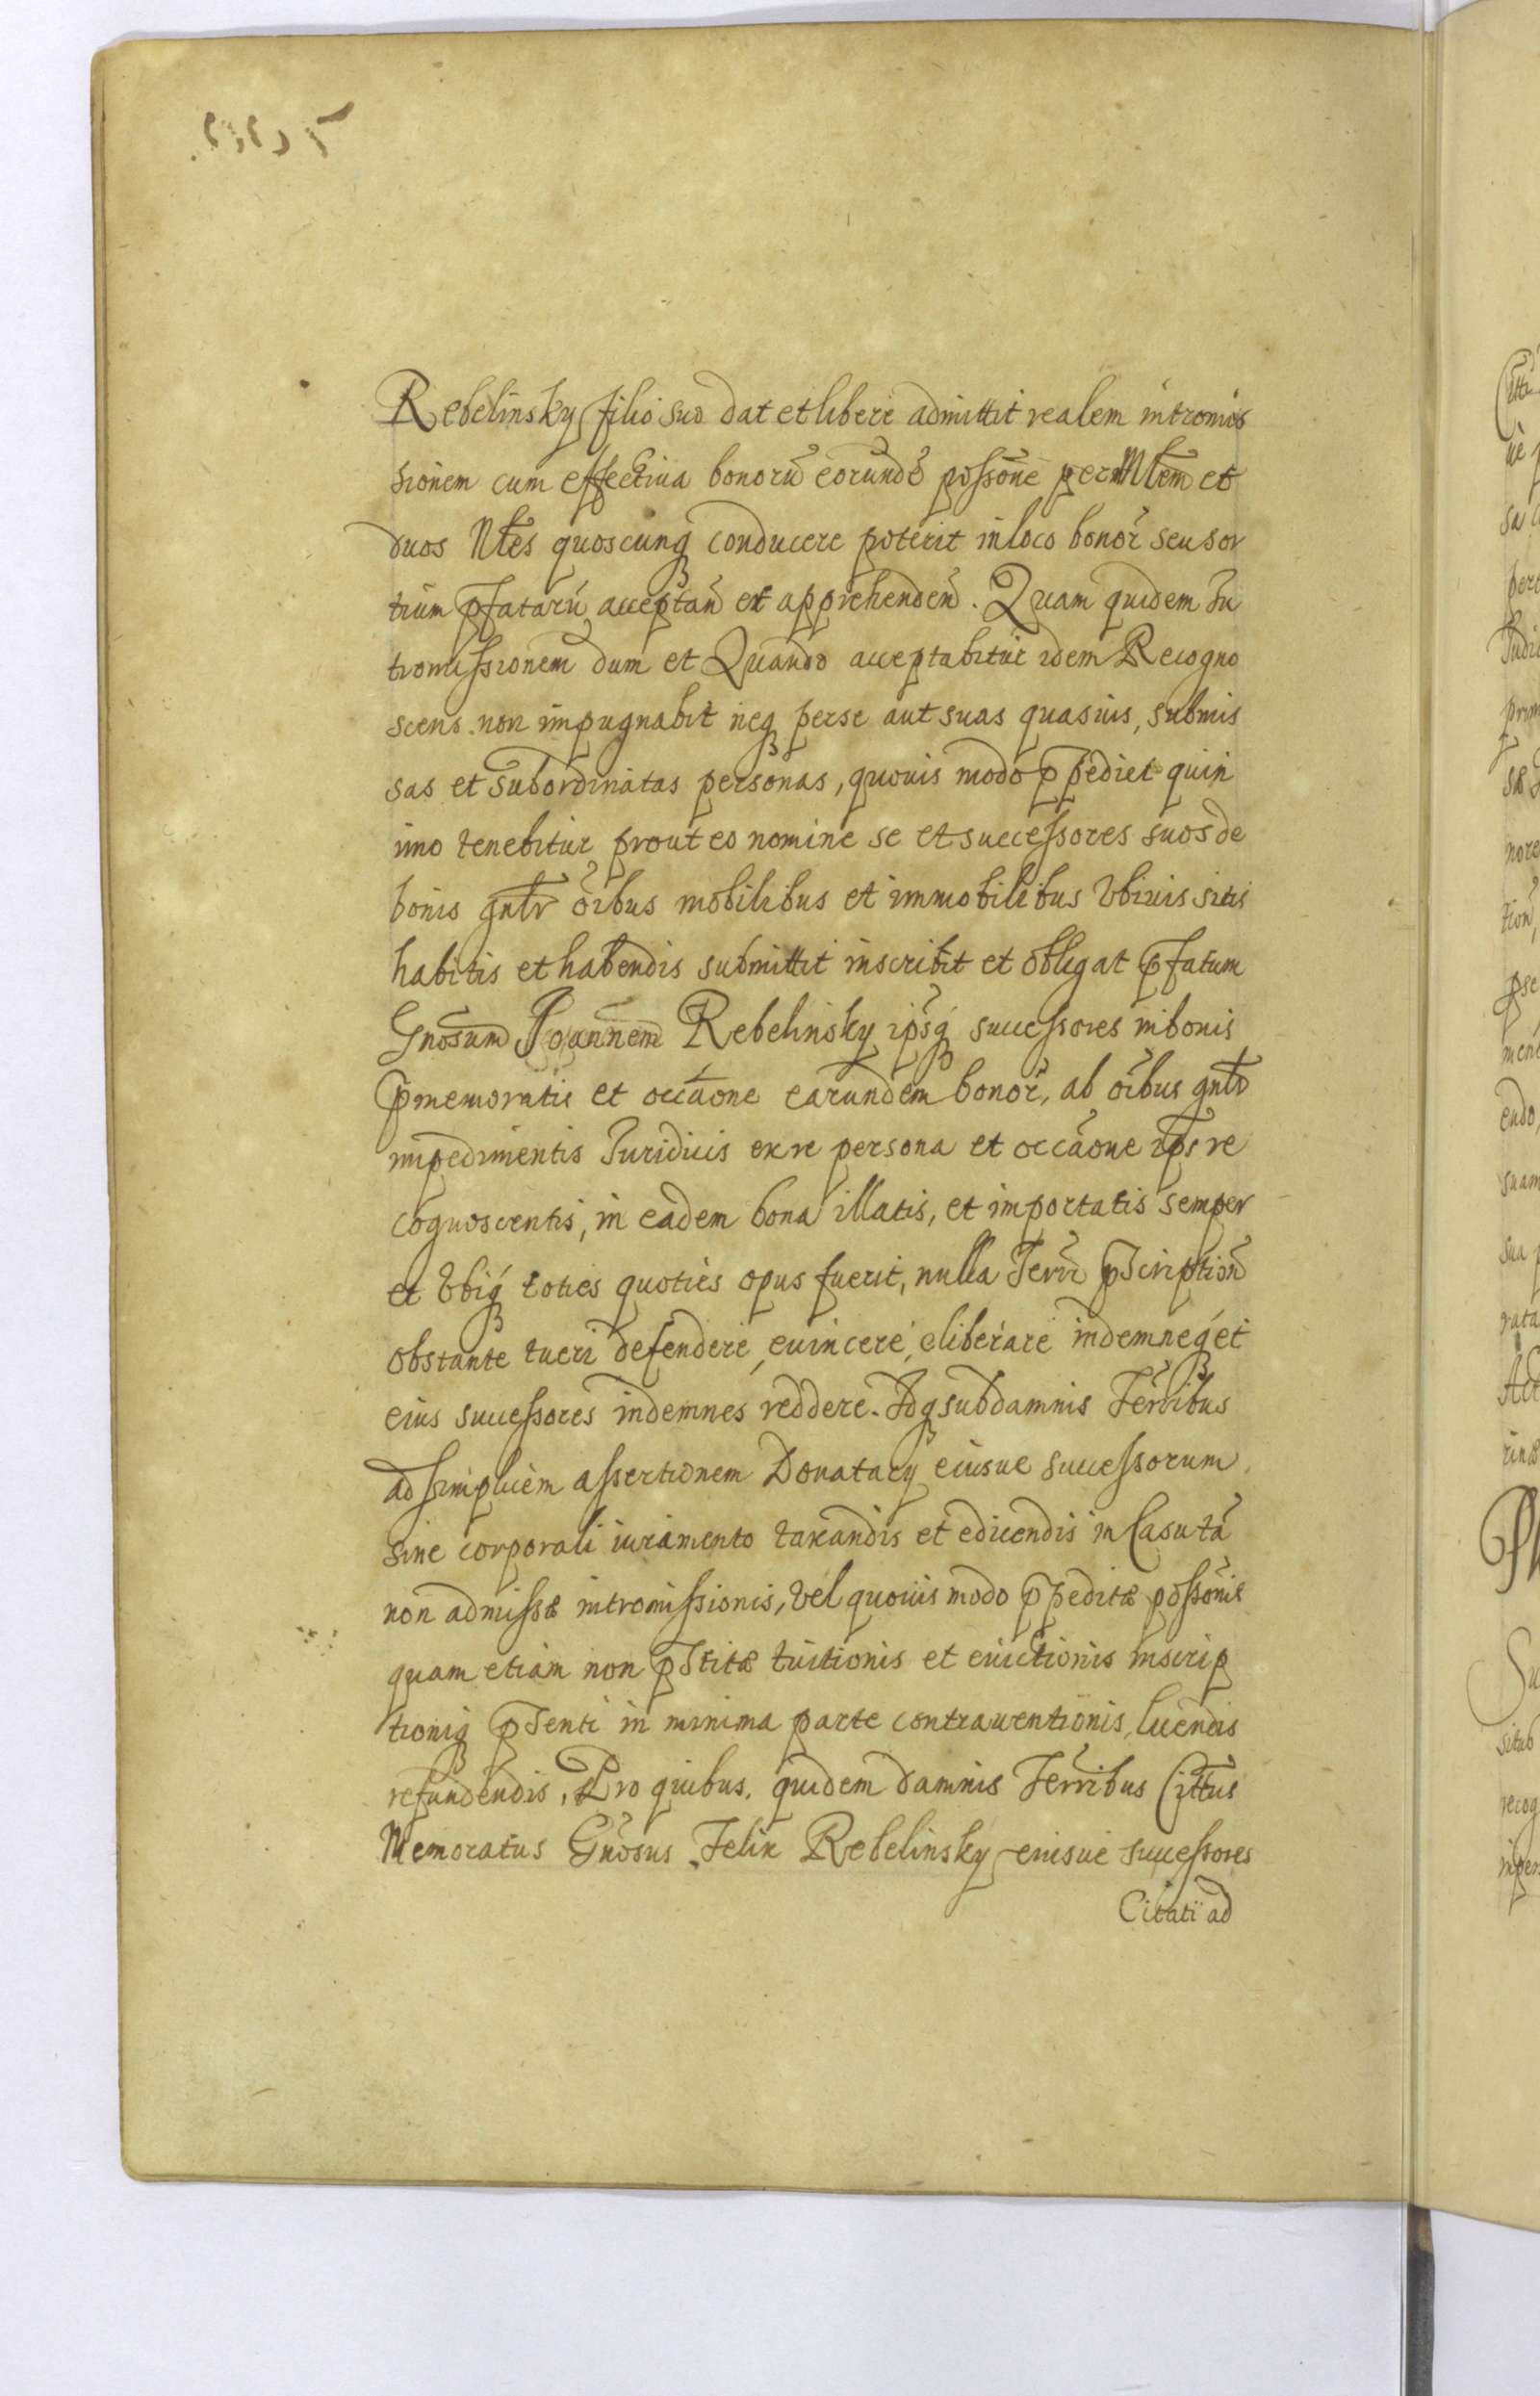 Rebelinsky filio suo dat et libere admittit realem intromis
sionem cum effectiua bonorũ eorundẽ possõne per Mlẽm et
duos Nl̃es quoscunq́ conducere poterit in loco bonor̃ seu sor
tium p̃fatarũ acceptañ et apprehendeñ. Quam quidem In
tromissionem dum et Quando acceptabitur idem Recogno
scens non impugnabit neq́ per se aut suas quasuis, submis
sas et subordinatas personas, quouis modo p̃pediet quin
imo tenebitur prout eo nomine se et successores suos de
bonis gñlr õibus mobilibus et immobilibus Vbiuis sitis
habitis et habendis submittit inscribit et obligat p̃fatum
Gñosum Joannem Rebelinsky ipsq́ successores in bonis
p̃memoratis et occãone earundem bonor̃, ab õibus gñlr
impedimentis Iuridicis ex re persona et occãone ip̃s re
cognoscentis, in eadem bona illatis, et importatis semper
et Vbiq́ toties quoties opus fuerit, nulla Terr̃ p̃scriptioñ
obstante tueri defendere euincere, eliberare indemneq́ et
eius successores indemnes reddere. Idq́ sub damnis Terr̃ibus
ad simplicem assertionem Donatarij eiusue successorum
sine corporali iuramento taxandis et edicendis in Casu tã
non admissæ intromissionis, Vel quouis modo p̃peditæ possõnis
quam etiam non p̃stitæ tuitionis et euictionis inscrip
tioniq́ p̃senti in minima parte contrauentionis, luendis
refundendis, Pro quibus quidem damnis Terr̃ibus Citt̃us
Memoratus Gñosus Felix Rebelinsky eiusue successores
Citati ad